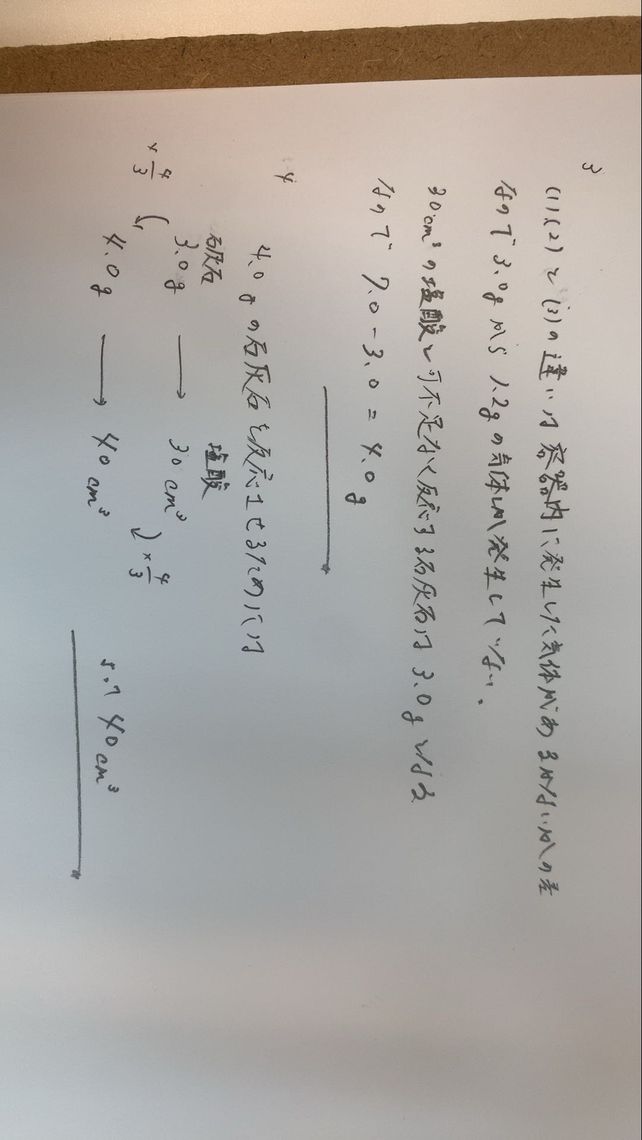 3
(1)(2)と(3)の違いは容器内に発生した気体があるかないかの差
なので3.0gから1.2gの気体しか発生していない。
30cm³の塩酸と可不足なく反応する石灰石は3.0gとなる
なので 7.0-3.0=4.0g
4
4.0gの石灰石を反応させるためには
石灰石 塩酸
×4/3 ( 3.0g → 30cm³ ) ×4/3
4.0g → 40cm³ より 40cm³